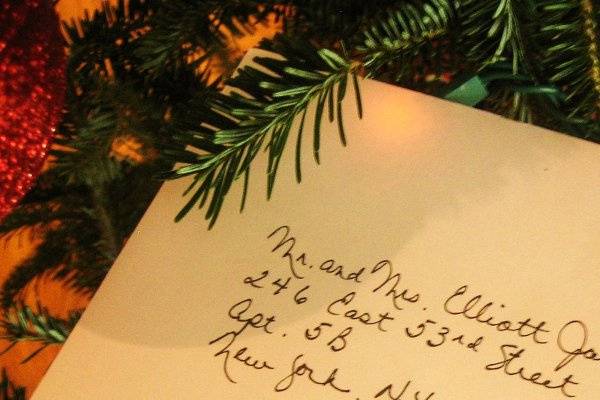 Mr. and Mrs. Elliott
246 East 53rd Street
Apt. 5B
New York, NY